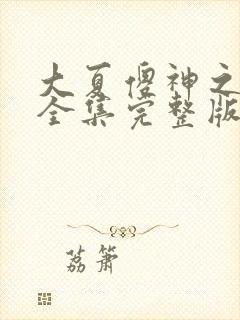 大夏傻神之
全集完整版
荔箫